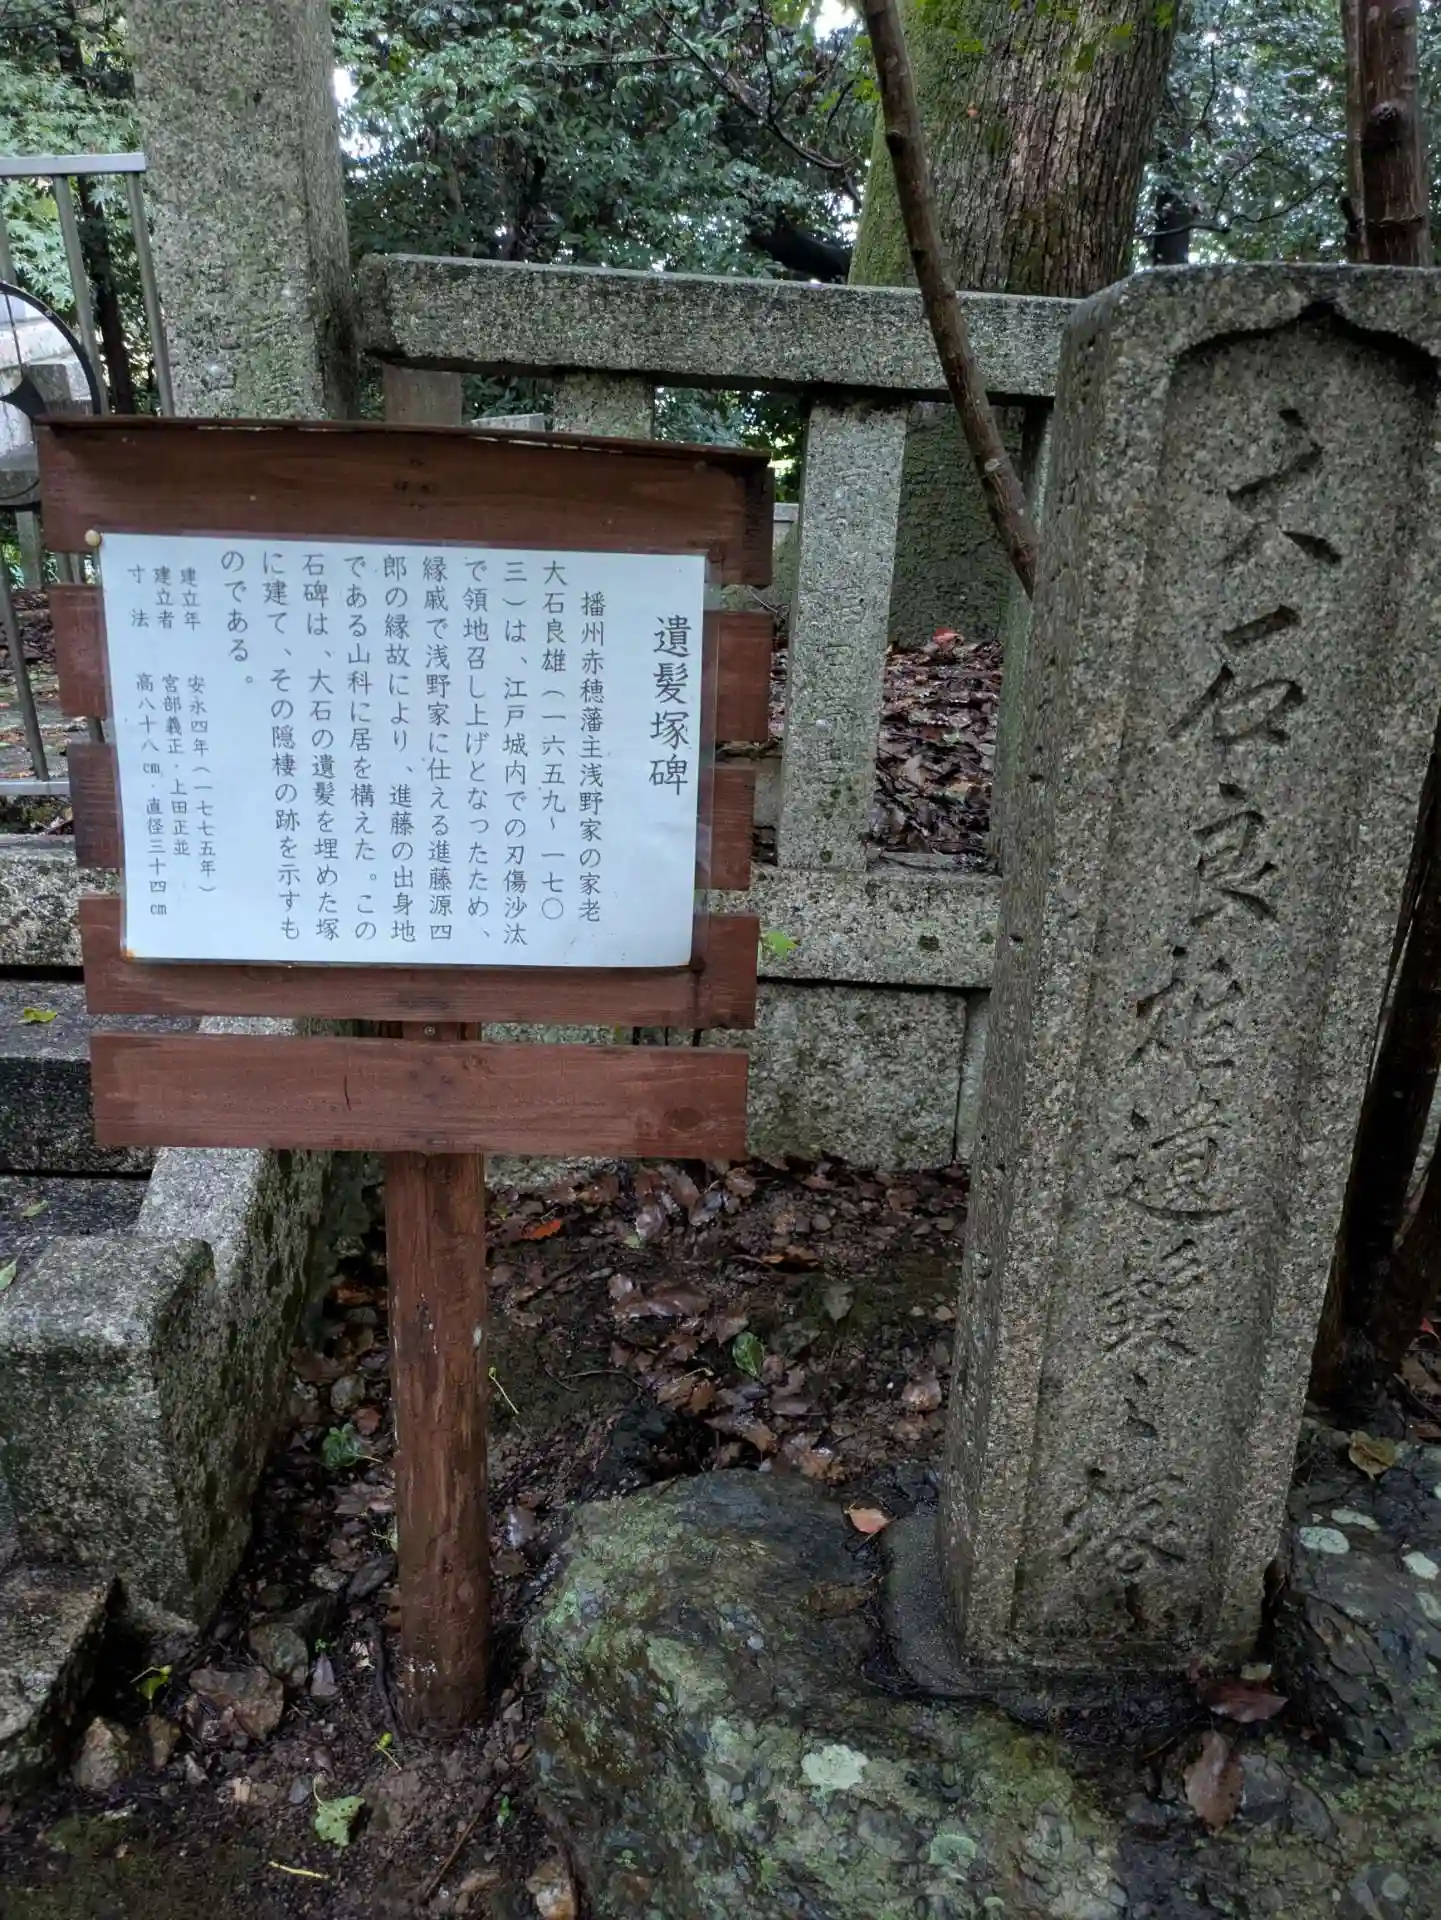 遺髪塚碑
播州赤穂藩主浅野家の家老
大石良雄（一六五九～一七〇
三）は、江戸城内での刃傷沙汰
で領地召し上げとなったため、
縁戚で浅野家に仕える進藤源四
郎の縁故により、進藤の出身地
である山科に居を構えた。この
石碑は、大石の遺髪を埋めた塚
に建て、その隠棲の跡を示すも
のである。
建立年 安永四年（一七七五年）
建立者 宮部義正・上田正並
寸法 高八十八cm・直径三十四cm
大石良雄遺髪塚